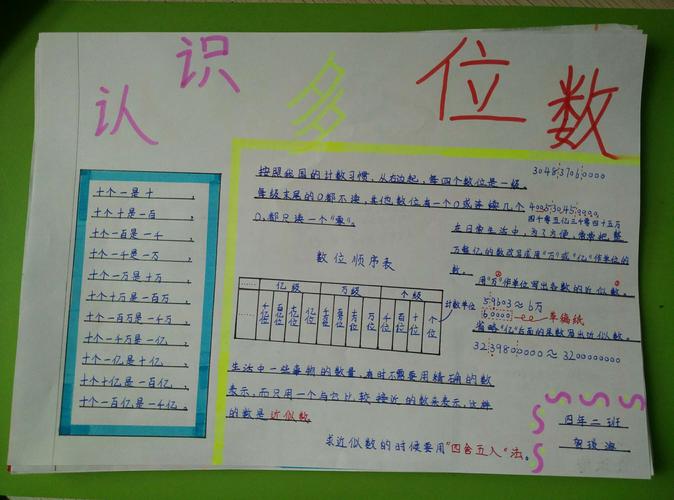 认识多位数
十个一是十，
十个十是一百，
十个一百是一千，
十个一千是一万，
十个一万是十万，
十个十万是一百万，
十个一百万是一千万，
十个一千万是一亿，
十个一亿是十亿，
十个十亿是一百亿，
十个一百亿是一千亿，
按照我国的计数习惯，从右边起，每四个数位是一级。
每级末尾的0都不读，其他数位有一个0或连续几个
0，都只读一个"零"。
304837060000
400530450000
四十零五亿三十零四十五万
在日常生活中，为了方便，常常把整
万整亿的数改写成用"万"或"亿"作单位的
数。
数位顺序表
…… 亿级 万级 个级
…… 千亿位 百亿位 十亿位 亿位 千万位 百万位 十万位 万位 千位 百位 十位 个位
计数单位
用"万"作单位写出各数的近似数。
59603≈6万
60000
草稿纸
省略"亿"后面的尾数写出近似数。
生活中一些事物的数量，有时不需要用精确的数
表示，而只用一个与它比较接近的数来表示，这样
的数是近似数
求近似数的时候要用"四舍五入"法。
四年二班